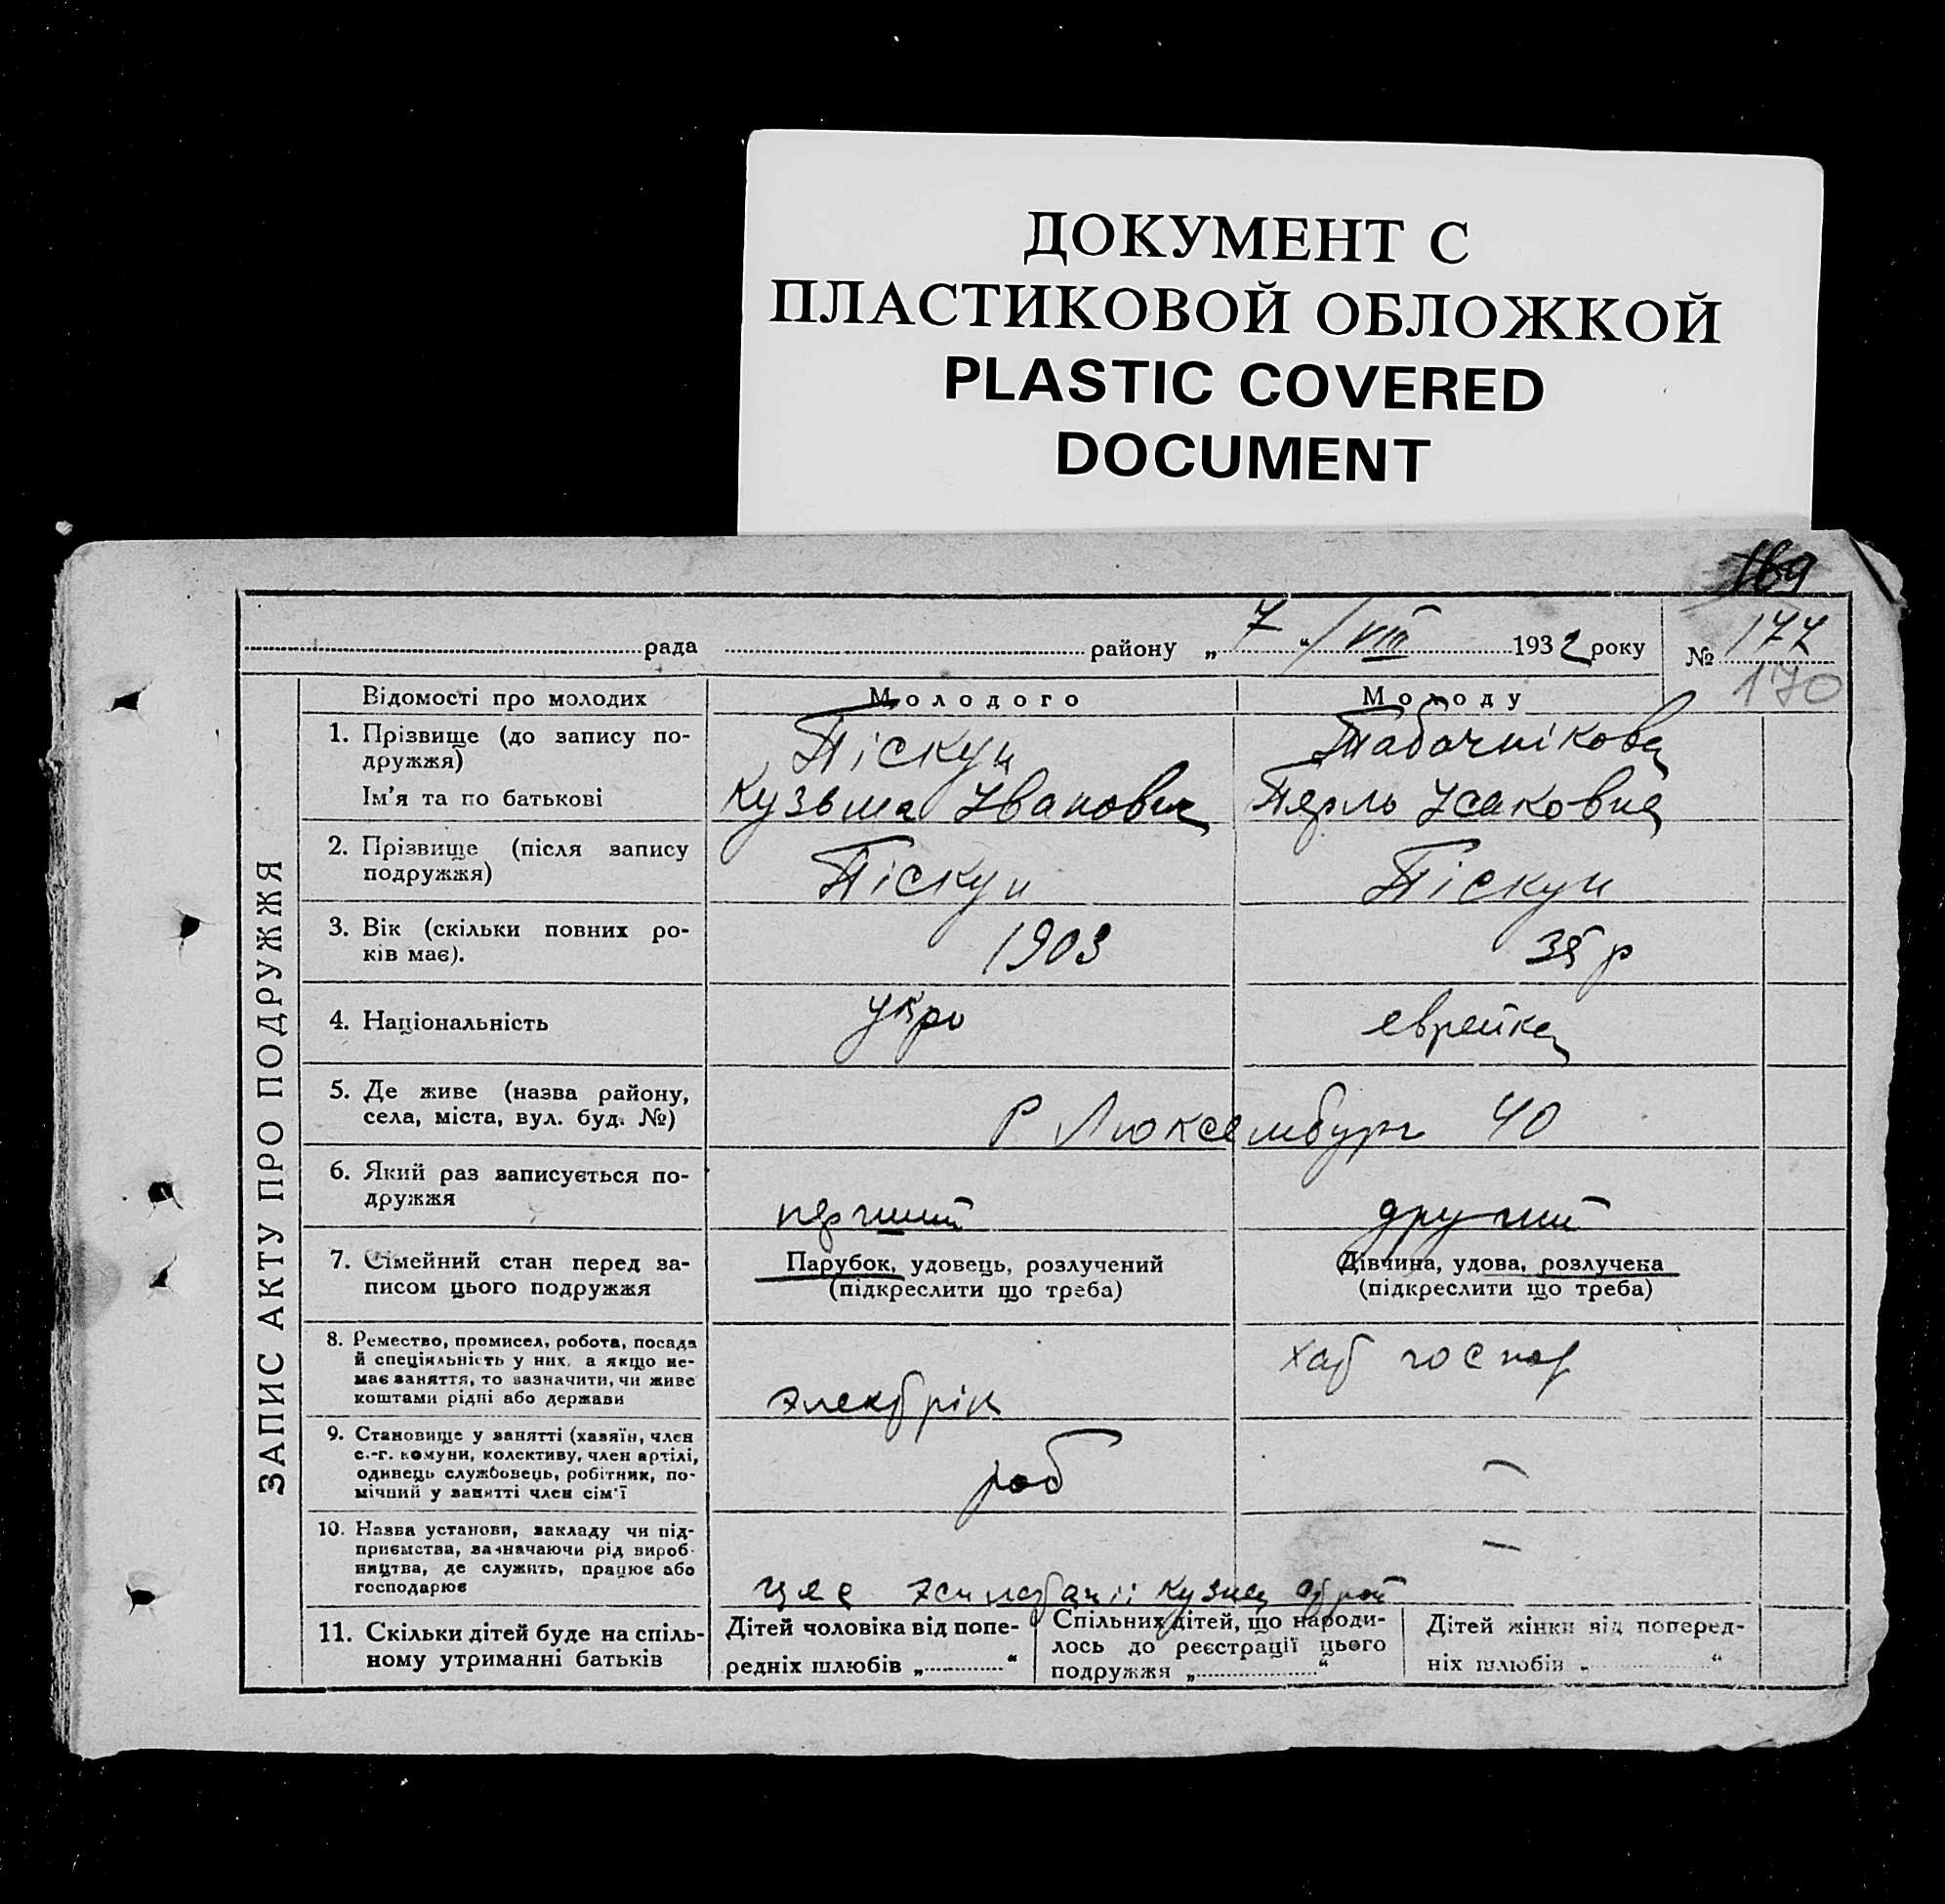 ДОКУМЕНТ С
ПЛАСТИКОВОЙ ОБЛОЖКОЙ
PLASTIC COVERED
DOCUMENT
169
рада району „7“ / VIII 1932 року № 177
170
ЗАПИС АКТУ ПРО ПОДРУЖЖЯ
Відомості про молодих Молодого Молоду
1. Прізвище (до запису по-
дружжя) Піскун Табачнікова
Ім'я та по батькові Кузьма Іванович Перль Ісаковна
2. Прізвище (після запису
подружжя) Піскун Піскун
3. Вік (скільки повних ро-
ків має). 1903 35 р
4. Національність укр еврейка
5. Де живе (назва району,
села, міста, вул. буд. №) Р Люксембург 40
6. Який раз записується по-
дружжя перший другий
7. Сімейний стан перед за-
писом цього подружжя
Парубок, удовець, розлучений
(підкреслити що треба)
Дівчина, удова, розлучена
(підкреслити що треба)
8. Ремество, промисел, робота, посада
й спеціяльність у них, а якщо не-
має заняття, то зазначити, чи живе
коштами рідні або держави
електрік хат господ
9. Становище у занятті (хазяїн, член
с.-г. комуни, колективу, член артілі,
одинець службовець, робітник, по-
мічний у занятті член сім'ї
роб —
10. Назва установи, закладу чи під-
приємства, зазначаючи рід вироб-
ництва, де служить, працює або
господарює
—
11. Скільки дітей буде на спіль-
ному утриманні батьків
Дітей чоловіка від попе-
редніх шлюбів „ “
Спільних дітей, що народи-
лось до реєстрації цього
подружжя „ “
Дітей жінки від поперед-
ніх шлюбів „ “